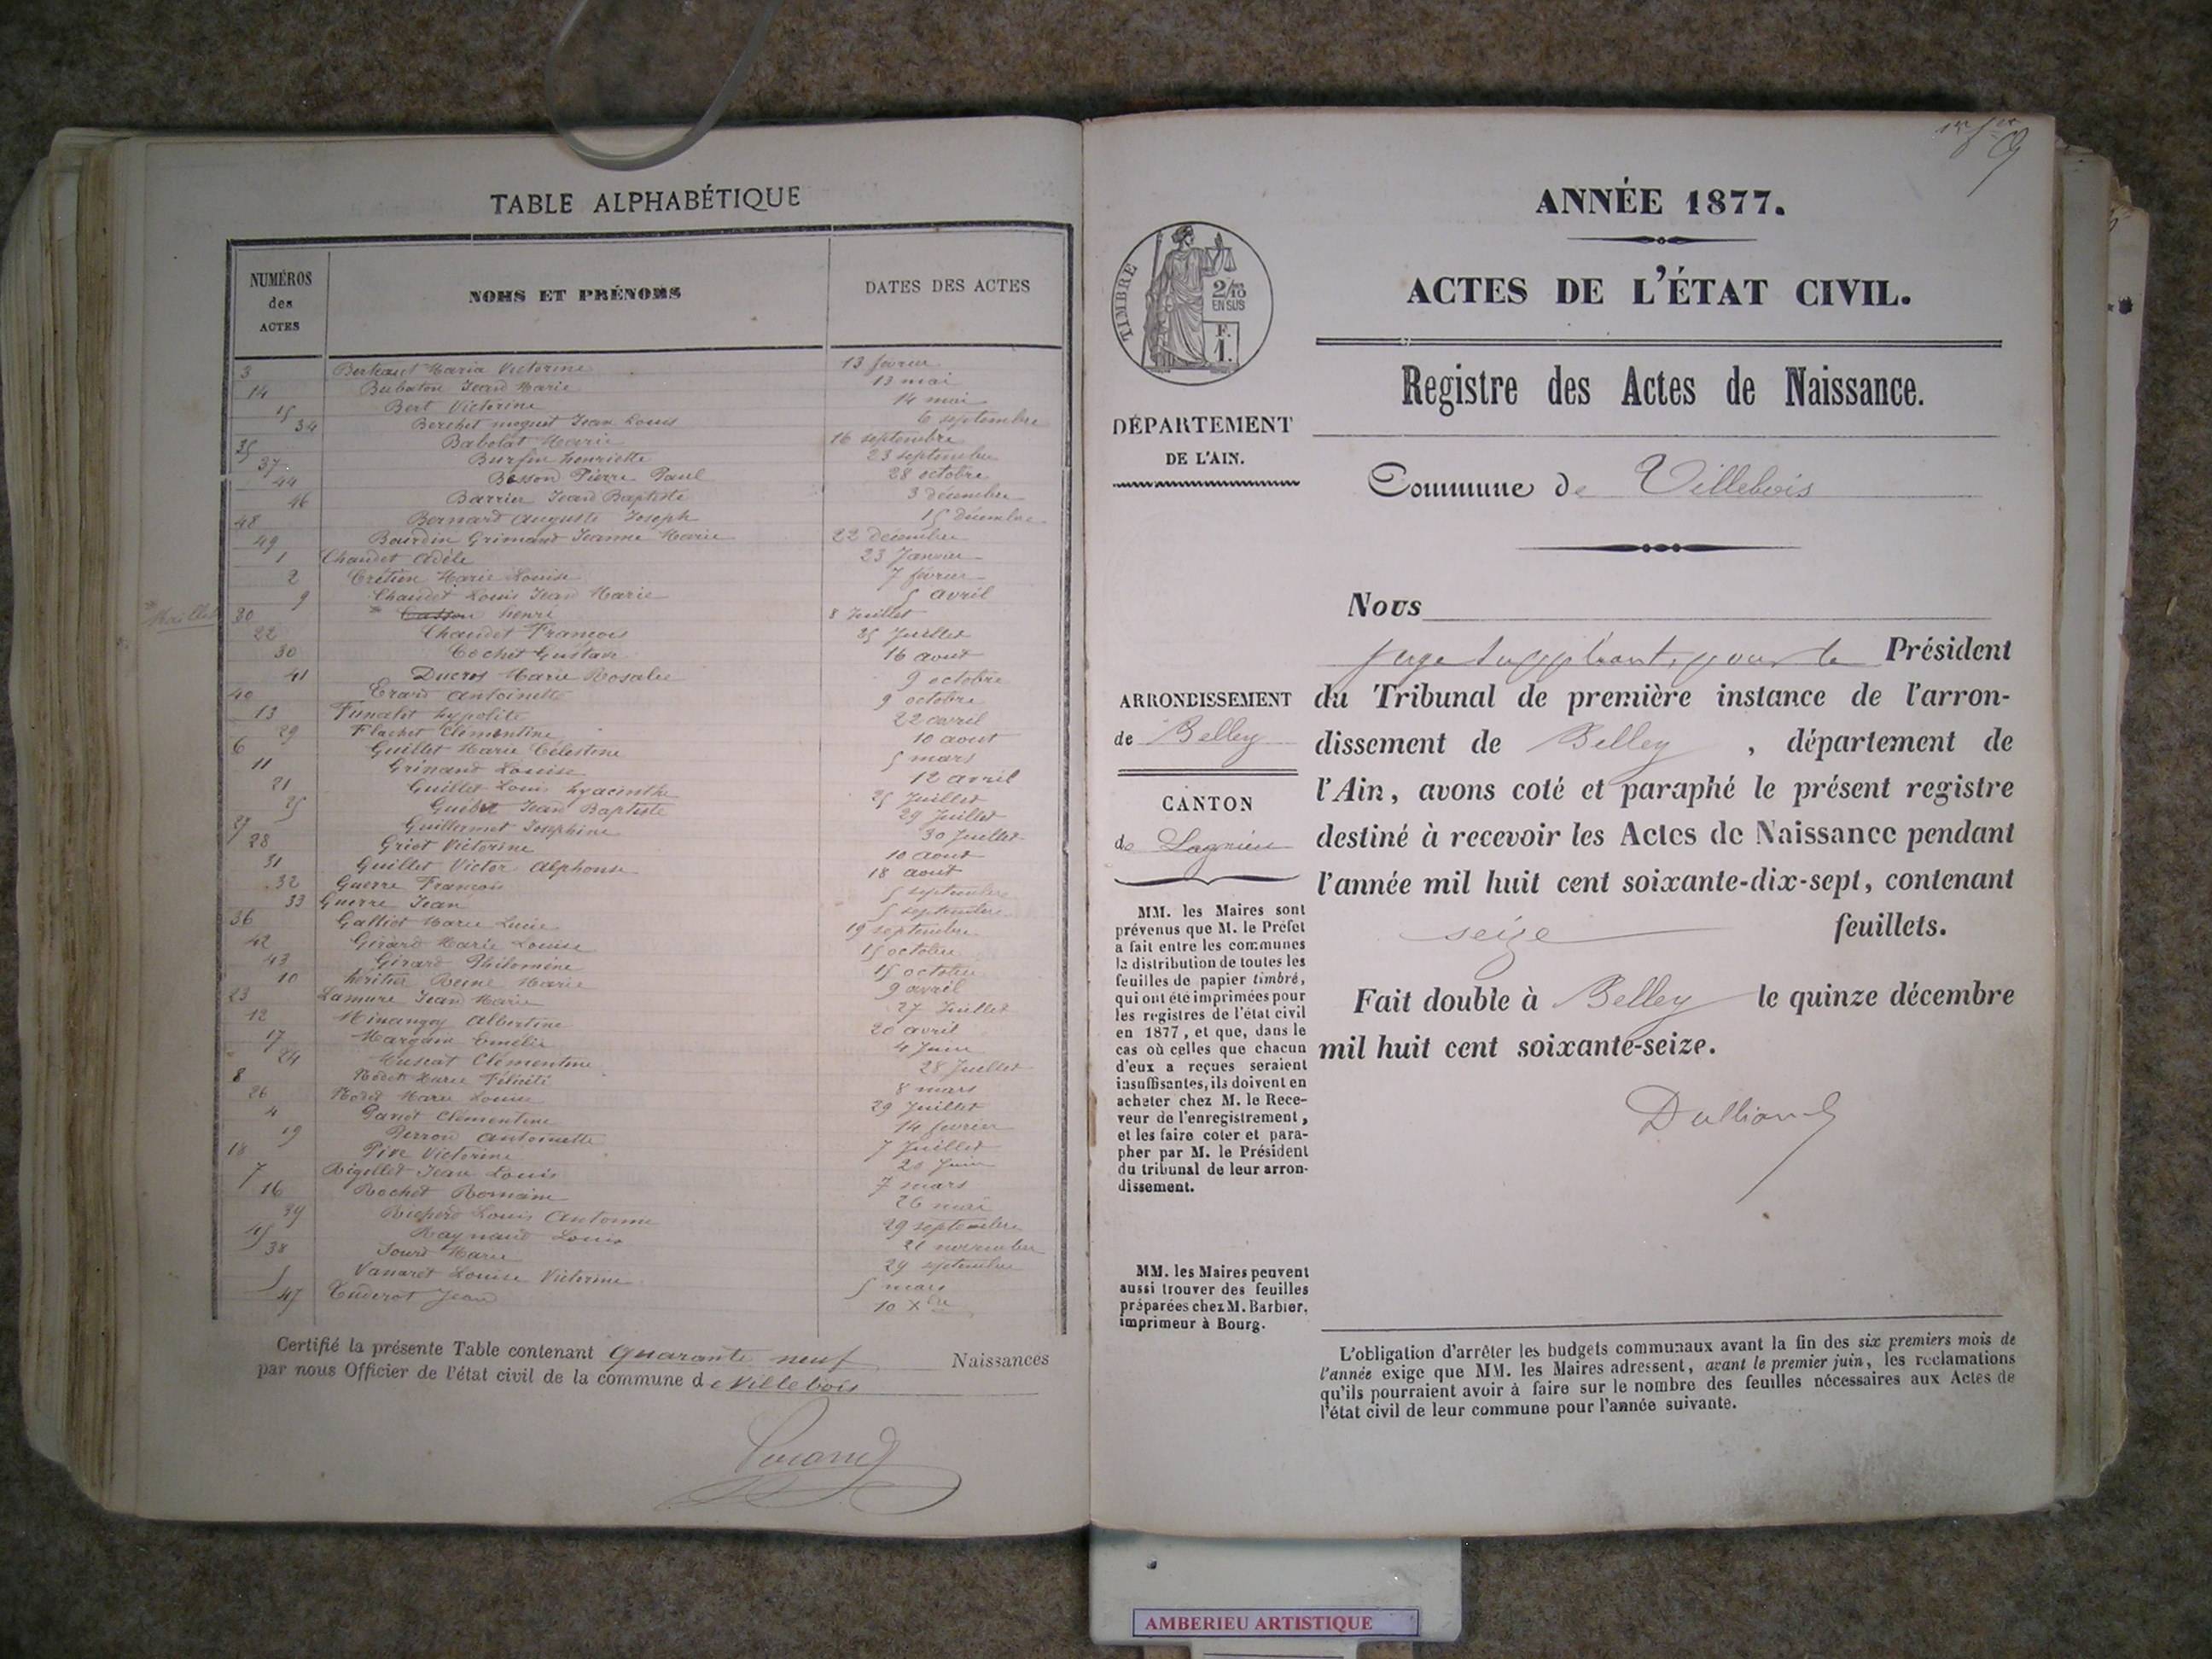 TABLE ALPHABÉTIQUE
NUMÉROS des ACTES
NOMS ET PRÉNOMS
DATES DES ACTES
3 Berteaut Maria Victorine 13 février
14 Bubaton Jean Marie 13 mai
15 Bert Victorine 14 mai
34 Berchet moquet Jean Louis 6 septembre
35 Babolat Marie 16 septembre
37 Burfin henriette 23 septembre
44 Besson Pierre Paul 28 octobre
46 Barrier Jean Baptiste 3 décembre
48 Bernard Auguste Joseph 15 décembre
49 Bourdin Grimaud Jeanne Marie 22 décembre
1 Chaudet Adèle 23 Janvier
2 Crétien Marie Louise 7 février
9 Chaudet Louis Jean Marie 5 avril
* Maillet 30 * henri 8 Juillet
22 Chaudet François 25 Juillet
30 Cochet Gustave 16 aout
41 Ducros Marie Rosalie 9 octobre
40 Erard Antoinette 9 octobre
13 Funalet hypolite 22 avril
29 Flachet Clémentine 10 aout
6 Guillet Marie Célestine 5 mars
11 Grinand Louise 12 avril
21 Guillet Louis hyacinthe 25 Juillet
25 Jean Baptiste 29 Juillet
27 Guillermet Joséphine 30 Juillet
28 Griot Victorine 10 aout
31 Guillet Victor Alphonse 18 aout
32 Guerre François 5 septembre
33 Guerre Jean 5 septembre
36 Galliot Marie Lucie 19 septembre
42 Girard Marie Louise 15 octobre
43 Girard Philomène 15 octobre
10 héritier Reine Marie 9 avril
23 Lamure Jean Marie 27 Juillet
12 Minangoy Albertine 20 avril
17 Marquin Emélie 4 Juin
24 Muscat Clémentine 28 Juillet
8 Nodet Marie Félicité 8 mars
26 Nodet Marie Louise 29 Juillet
4 Panet Clémentine 14 février
19 Perron Antoinette 7 Juillet
18 Pive Victorine 20 Juin
7 Rigollet Jean Louis 7 mars
16 Rochet Romain 26 mai
39 Louis Antoine 29 septembre
45 Raynaud Louis 21 novembre
38 Sourd Marie 29 septembre
5 Vanaret Louise Victorine 5 mars
47 Jean 10 Xbre
Certifié la présente Table contenant Quarante neuf Naissances
par nous Officier de l'état civil de la commune de Villebois
1er fet
ANNÉE 1877.
ACTES DE L'ÉTAT CIVIL.
TIMBRE
2/10 EN SUS
F. 1.
Registre des Actes de Naissance.
DÉPARTEMENT
DE L'AIN.
Commune de Villebois
Nous
juge suppléant, pour le Président
du Tribunal de première instance de l'arron-
dissement de Belley, département de
l'Ain, avons coté et paraphé le présent registre
destiné à recevoir les Actes de Naissance pendant
l'année mil huit cent soixante-dix-sept, contenant
seize feuillets.
Fait double à Belley le quinze décembre
mil huit cent soixante-seize.
ARRONDISSEMENT
de Belley
CANTON
de Lagnieu
MM. les Maires sont
prévenus que M. le Préfet
a fait entre les communes
la distribution de toutes les
feuilles de papier timbré,
qui ont été imprimées pour
les registres de l'état civil
en 1877, et que, dans le
cas où celles que chacun
d'eux a reçues seraient
insuffisantes, ils doivent en
acheter chez M. le Rece-
veur de l'enregistrement,
et les faire coter et para-
pher par M. le Président
du tribunal de leur arron-
dissement.
MM. les Maires peuvent
aussi trouver des feuilles
préparées chez M. Barbier,
imprimeur à Bourg.
L'obligation d'arrêter les budgets communaux avant la fin des six premiers mois de
l'année exige que MM. les Maires adressent, avant le premier juin, les réclamations
qu'ils pourraient avoir à faire sur le nombre des feuilles nécessaires aux Actes de
l'état civil de leur commune pour l'année suivante.
AMBERIEU ARTISTIQUE